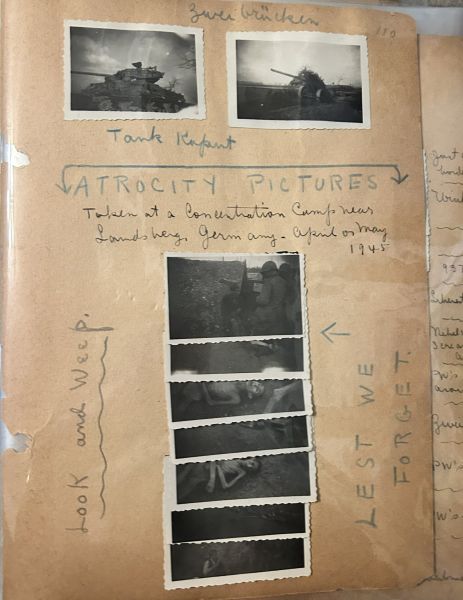 Zweibrücken
Tank Kaput
ATROCITY PICTURES
Taken at a Concentration Camp near
Landsberg, Germany - April or May
1945
Look and Weep.
LEST WE
FORGET.
PW's
PW's